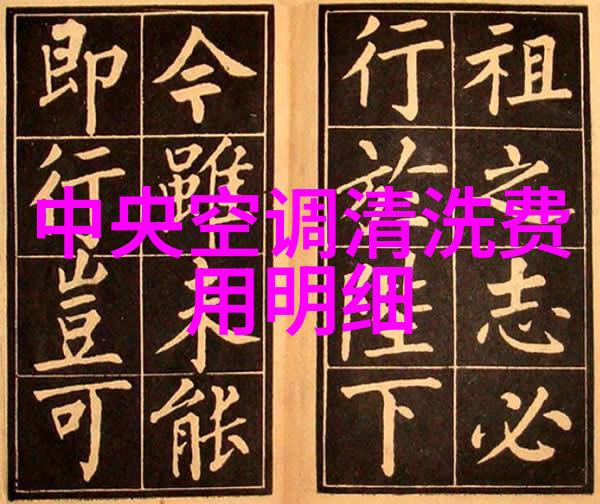 中央空调清洗费
用明细
祖之志必
行於陛下
今雖未能
即行豈可